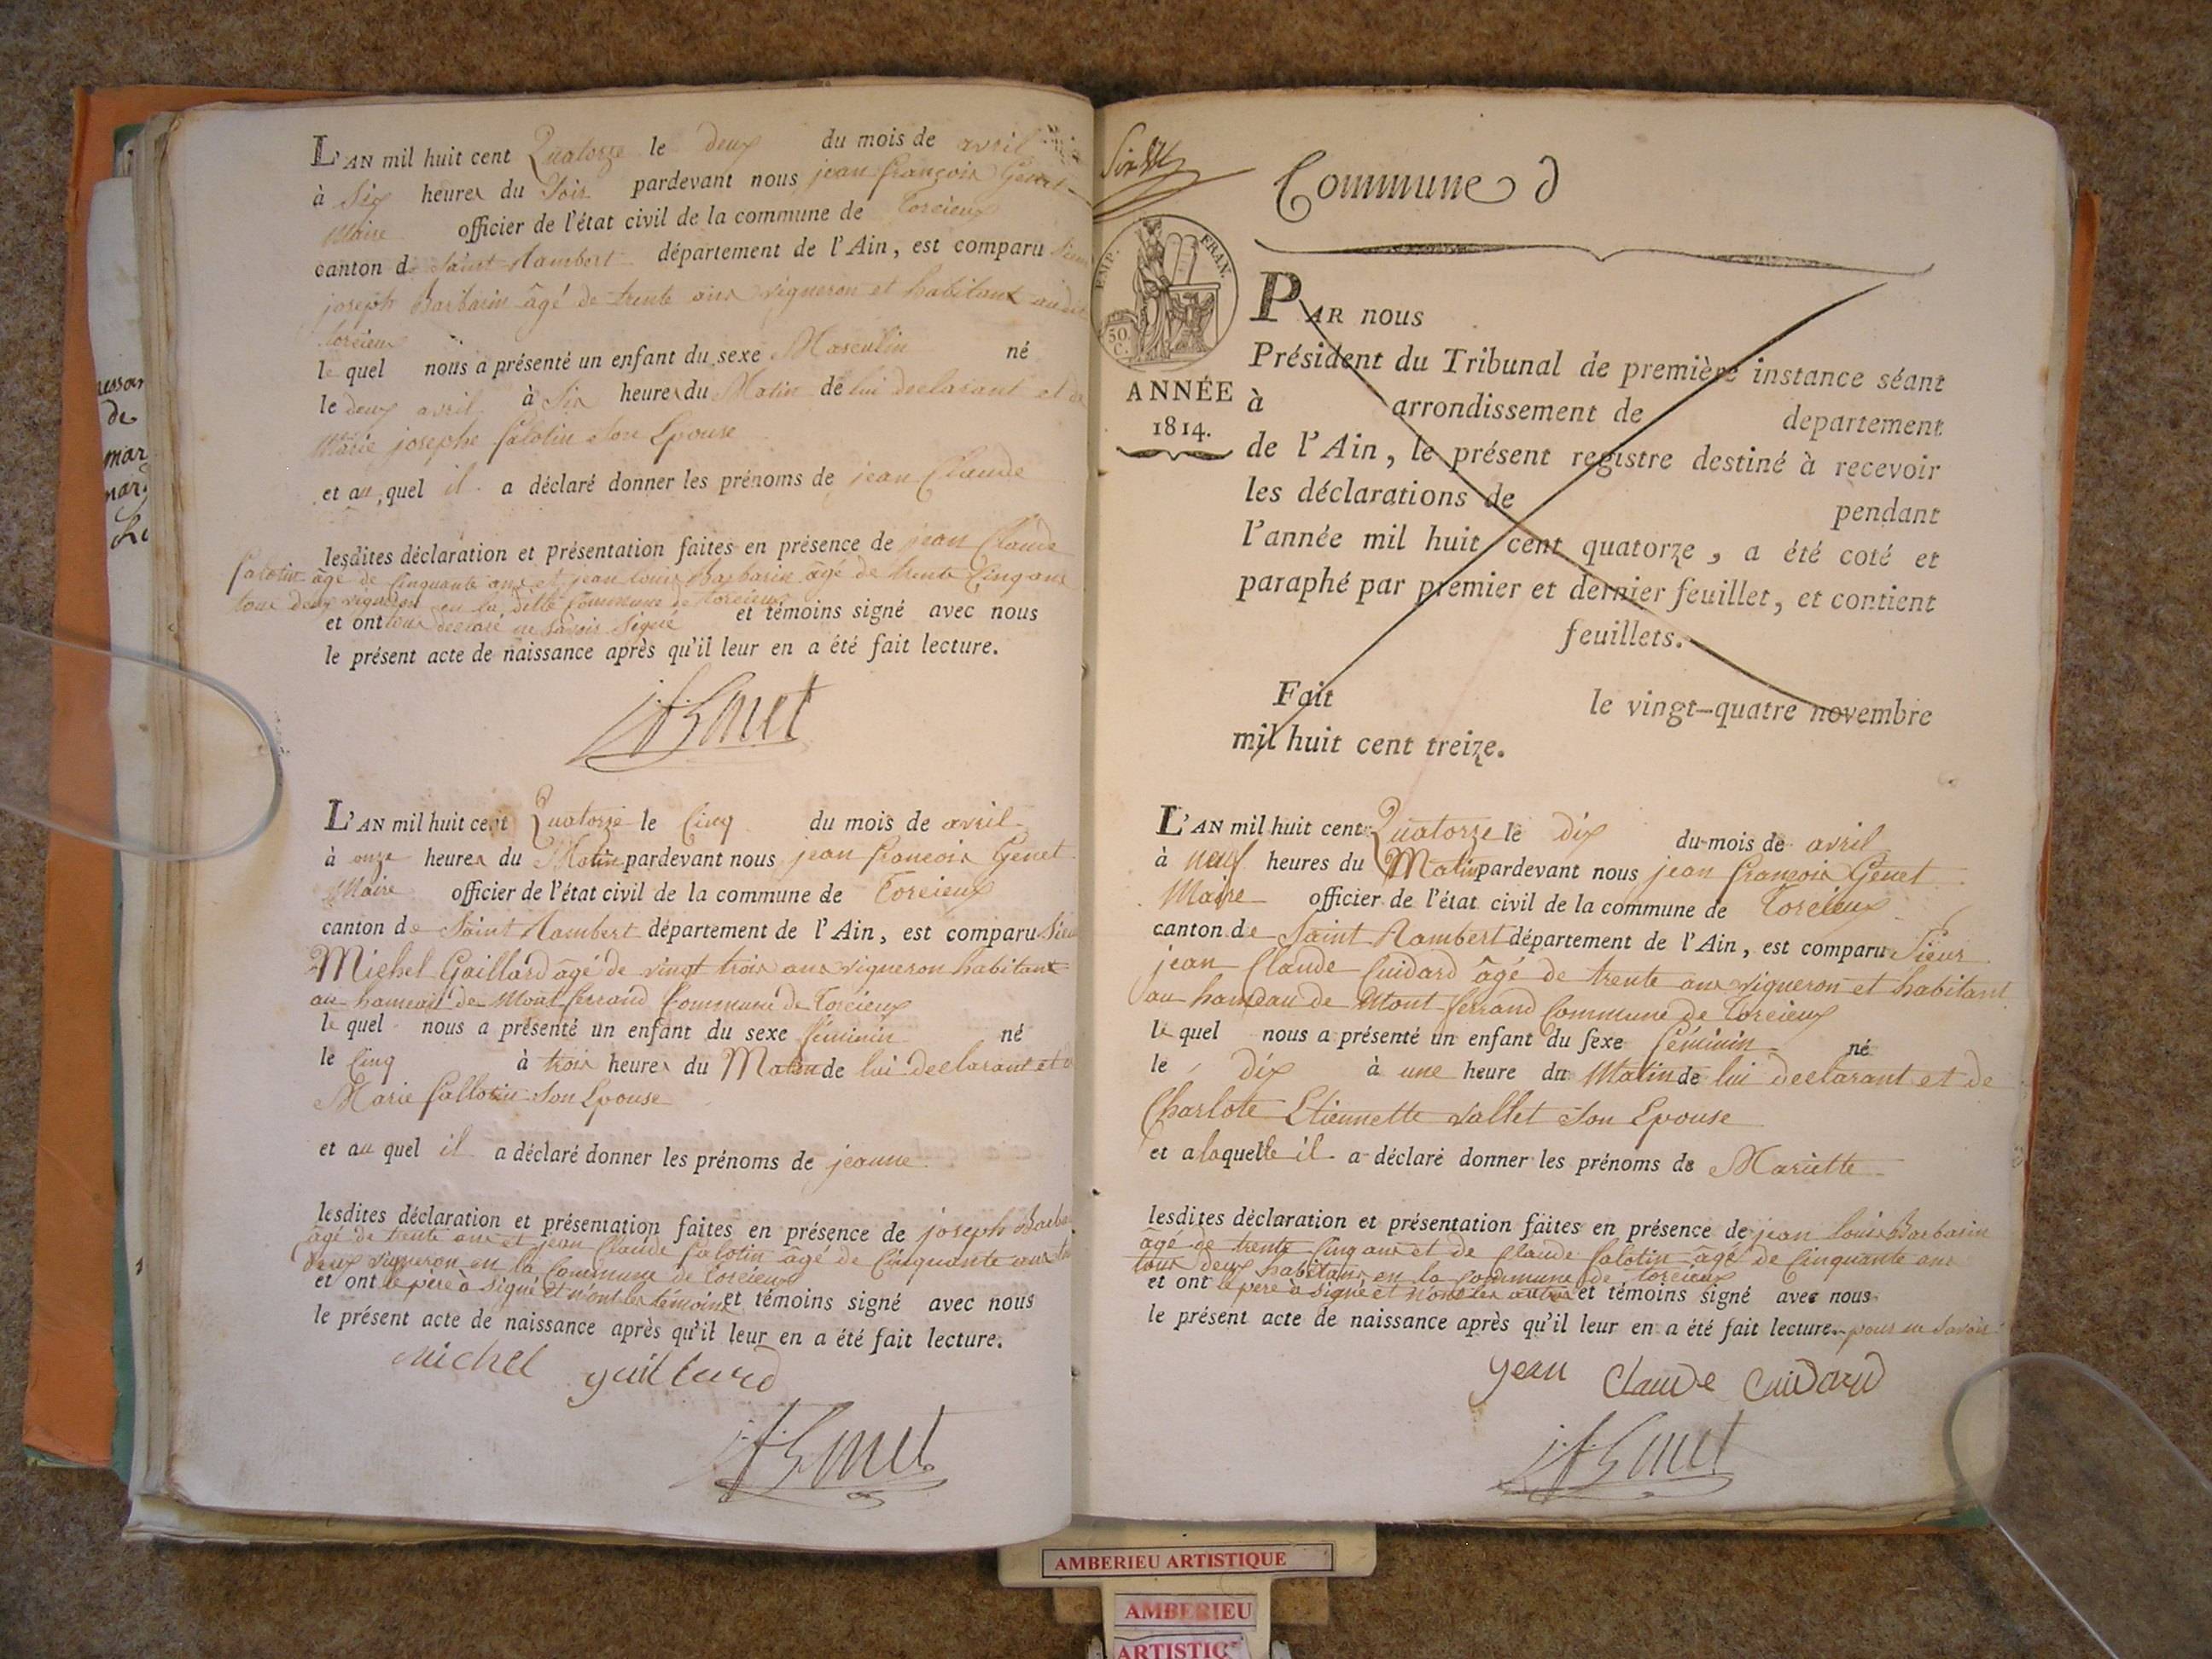 L'AN mil huit cent Quatorze le deux du mois de avril
à Six heures du Soir pardevant nous jean françois Genet
Maire officier de l'état civil de la commune de Torcieux
canton de Saint Rambert département de l'Ain, est comparu Sieur
joseph Barbarin âgé de trente ans vigneron et habitant audit
torcieux
le quel nous a présenté un enfant du sexe Masculin né
le deux avril à Six heures du Matin de lui declarant et de
Marie josephe falotin Son Epouse
et au quel il a déclaré donner les prénoms de jean Claude
lesdites déclaration et présentation faites en présence de jean Claude
falotin âgé de Cinquante ans et jean louis Barbarin âgé de trente Cinq ans
tous deux vigneron en la ditte Commune de torcieux
et ont tous declaré ne Savoir Signé et témoins signé avec nous
le présent acte de naissance après qu'il leur en a été fait lecture.
jf Genet
L'AN mil huit cent Quatorze le Cinq du mois de avril
à onze heures du Matin pardevant nous jean francois Genet
Maire officier de l'état civil de la commune de Torcieux
canton de Saint Rambert département de l'Ain, est comparu Sieur
Michel Gaillard âgé de vingt trois ans vigneron habitant
au hameau de Mont ferrand Commune de Torcieux
le quel nous a présenté un enfant du sexe féminin né
le Cinq à trois heures du Matin de lui declarant et de
Marie fallotin Son Epouse
et au quel il a déclaré donner les prénoms de jeanne
lesdites déclaration et présentation faites en présence de joseph Barba
âgé de trente ans et jean Claude falotin âgé de Cinquante ans
deux vigneron en la Commune de Torcieux
et ont le père à Signé et non les témoins et témoins signé avec nous
le présent acte de naissance après qu'il leur en a été fait lecture.
michel gaillard
jf Genet
Commune d
EMP. FRAN.
50 C.
ANNÉE
1814.
PAR nous
Président du Tribunal de première instance séant
à arrondissement de departement
de l'Ain, le présent registre destiné à recevoir
les déclarations de pendant
l'année mil huit cent quatorze, a été coté et
paraphé par premier et dernier feuillet, et contient
feuillets.
Fait le vingt-quatre novembre
mil huit cent treize.
L'AN mil huit cent Quatorze le dix du mois de avril
à neuf heures du Matin pardevant nous jean francois Genet
Maire officier de l'état civil de la commune de Torcieux
canton de Saint Rambert département de l'Ain, est comparu Sieur
jean Claude Cuidard âgé de trente ans vigneron et habitant
au hameau de Mont ferrand Commune de Torcieux
le quel nous a présenté un enfant du sexe féminin né
le dix à une heure du Matin de lui declarant et de
Charlote Etiennette vallet Son Epouse
et a laquelle il a déclaré donner les prénoms de Mariette
lesdites déclaration et présentation faites en présence de jean louis Barbarin
âgé de trente Cinq ans et de Claude falotin âgé de Cinquante ans
tous deux habitans en la Commune de torcieux
et ont le pere à signé et non les autres et témoins signé avec nous
le présent acte de naissance après qu'il leur en a été fait lecture. pour ne Savoir
jean Claude Cuidard
jf Genet
AMBERIEU ARTISTIQUE
AMBERIEU
ARTISTIQ